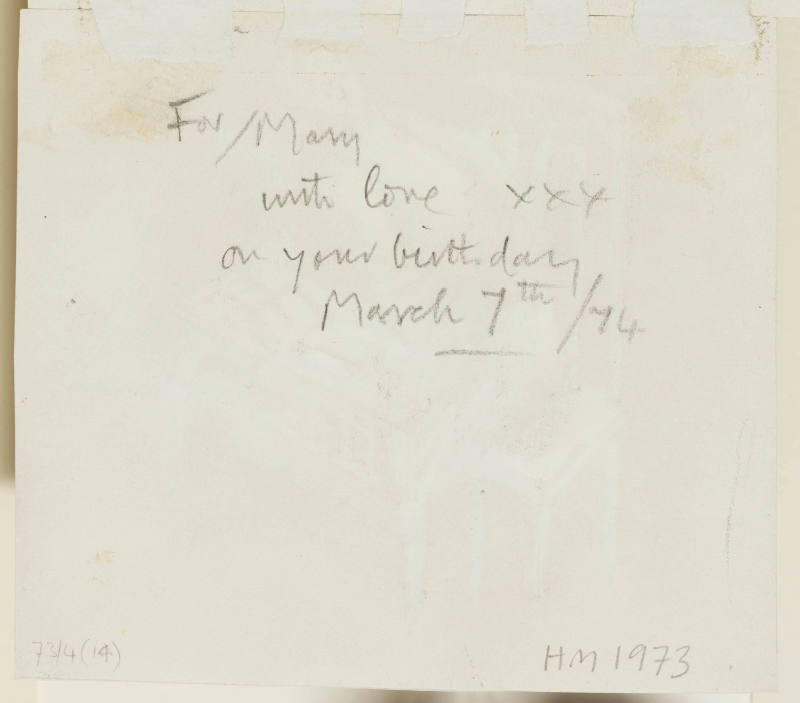 For/Mary
with love xxx
on your birthday
March 7th/74
73/4(14)
HM 1973